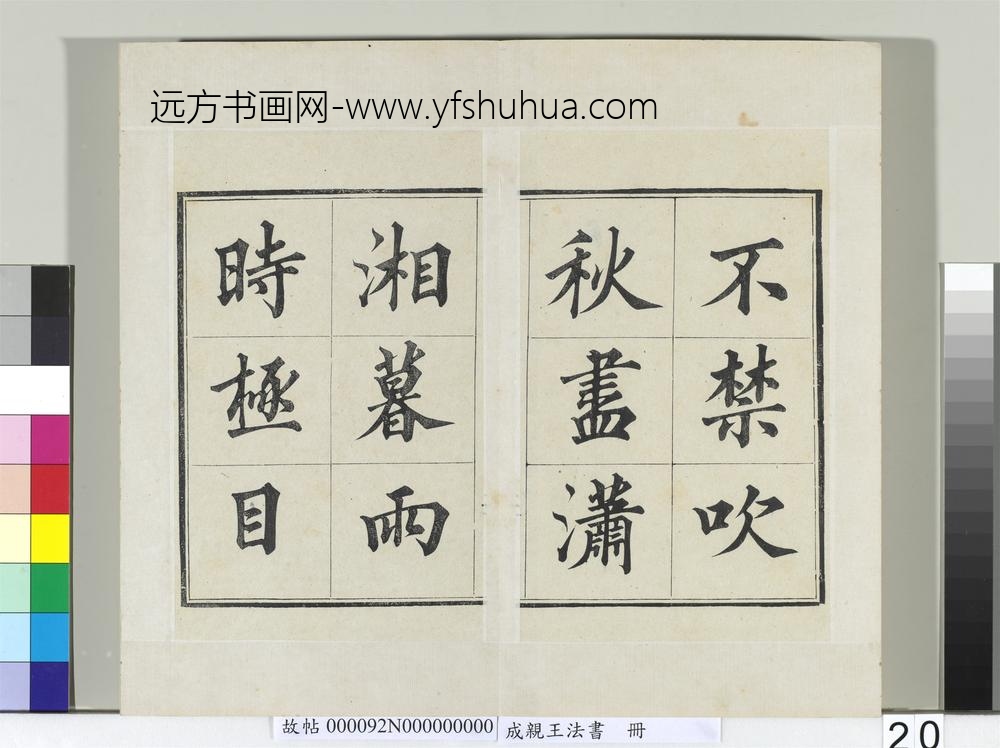 远方书画网-www.yfshuhua.com
不禁吹
秋盡瀟
湘暮雨
時極目
故帖 000092N000000000 成親王法書 冊
20